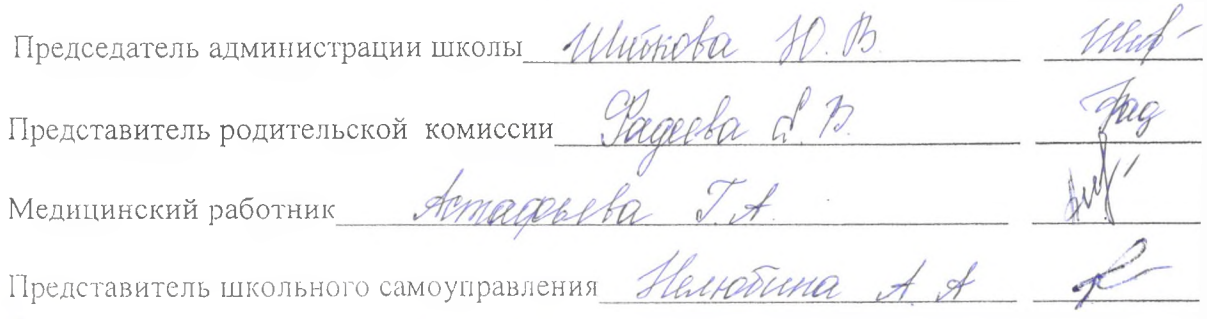 Председатель администрации школы Шишкова Ю. В.
Представитель родительской комиссии Фадеева Л. В. Фад
Медицинский работник Астафьева Г. А.
Представитель школьного самоуправления Нелюбина А. А